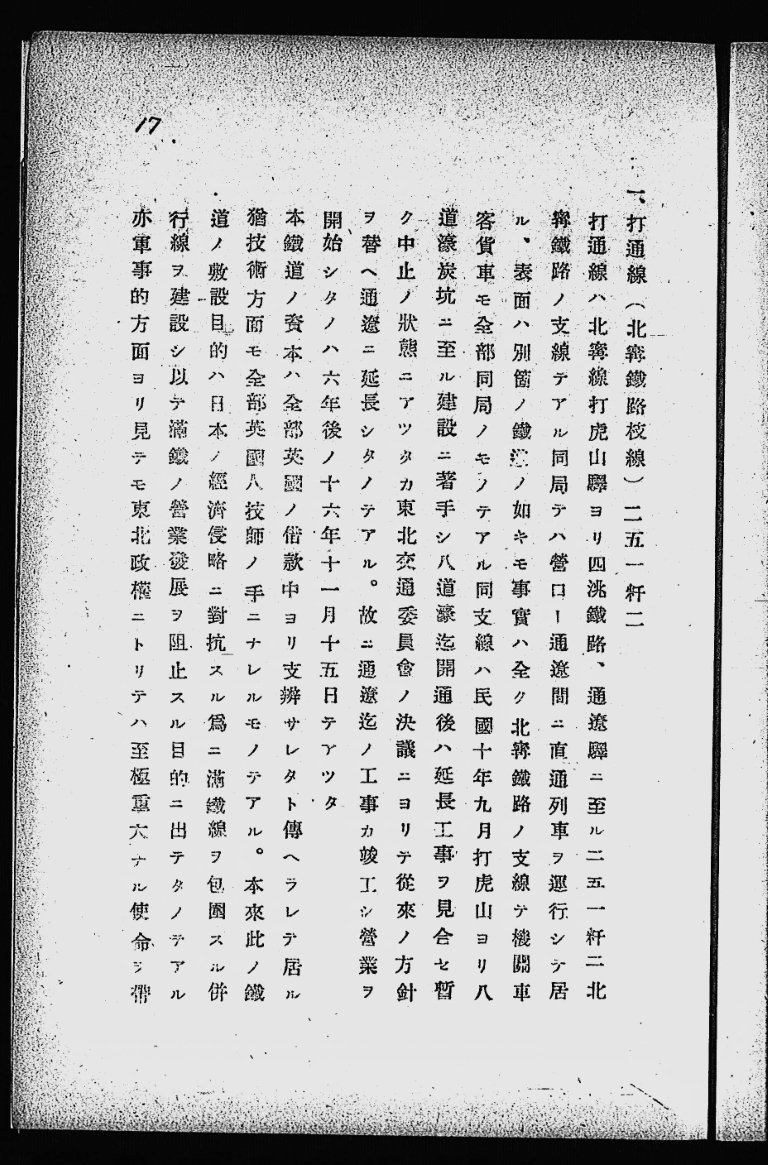 17
一、打通線（北寗鐵路枝線）二五一粁二
打通線ハ北寗線打虎山驛ヨリ四洮鐵路、通遼驛ニ至ル二五一粁二北
寗鐵路ノ支線テアル同局テハ營口ー通遼間ニ直通列車ヲ運行シテ居
ル、表面ハ別箇ノ鐵道ノ如キモ事實ハ全ク北寗鐵路ノ支線テ機關車
客貨車モ全部同局ノモノテアル同支線ハ民國十年九月打虎山ヨリ八
道濠炭坑ニ至ル建設ニ著手シ八道濠迄開通後ハ延長工事ヲ見合セ暫
ク中止ノ狀態ニアツタカ東北交通委員會ノ決議ニヨリテ從來ノ方針
ヲ替ヘ通遼ニ延長シタノテアル。故ニ通遼迄ノ工事カ竣工シ營業ヲ
開始シタノハ六年後ノ十六年十一月十五日テアツタ
本鐵道ノ資本ハ全部英國ノ借款中ヨリ支辨サレタト傳ヘラレテ居ル
猶技術方面モ全部英國人技師ノ手ニナレルモノテアル。本來此ノ鐵
道ノ敷設目的ハ日本ノ經濟侵略ニ對抗スル爲ニ滿鐵線ヲ包圍スル併
行線ヲ建設シ以テ滿鐵ノ營業發展ヲ阻止スル目的ニ出テタノテアル
亦軍事的方面ヨリ見テモ東北政權ニトリテハ至極重大ナル使命ヲ帶